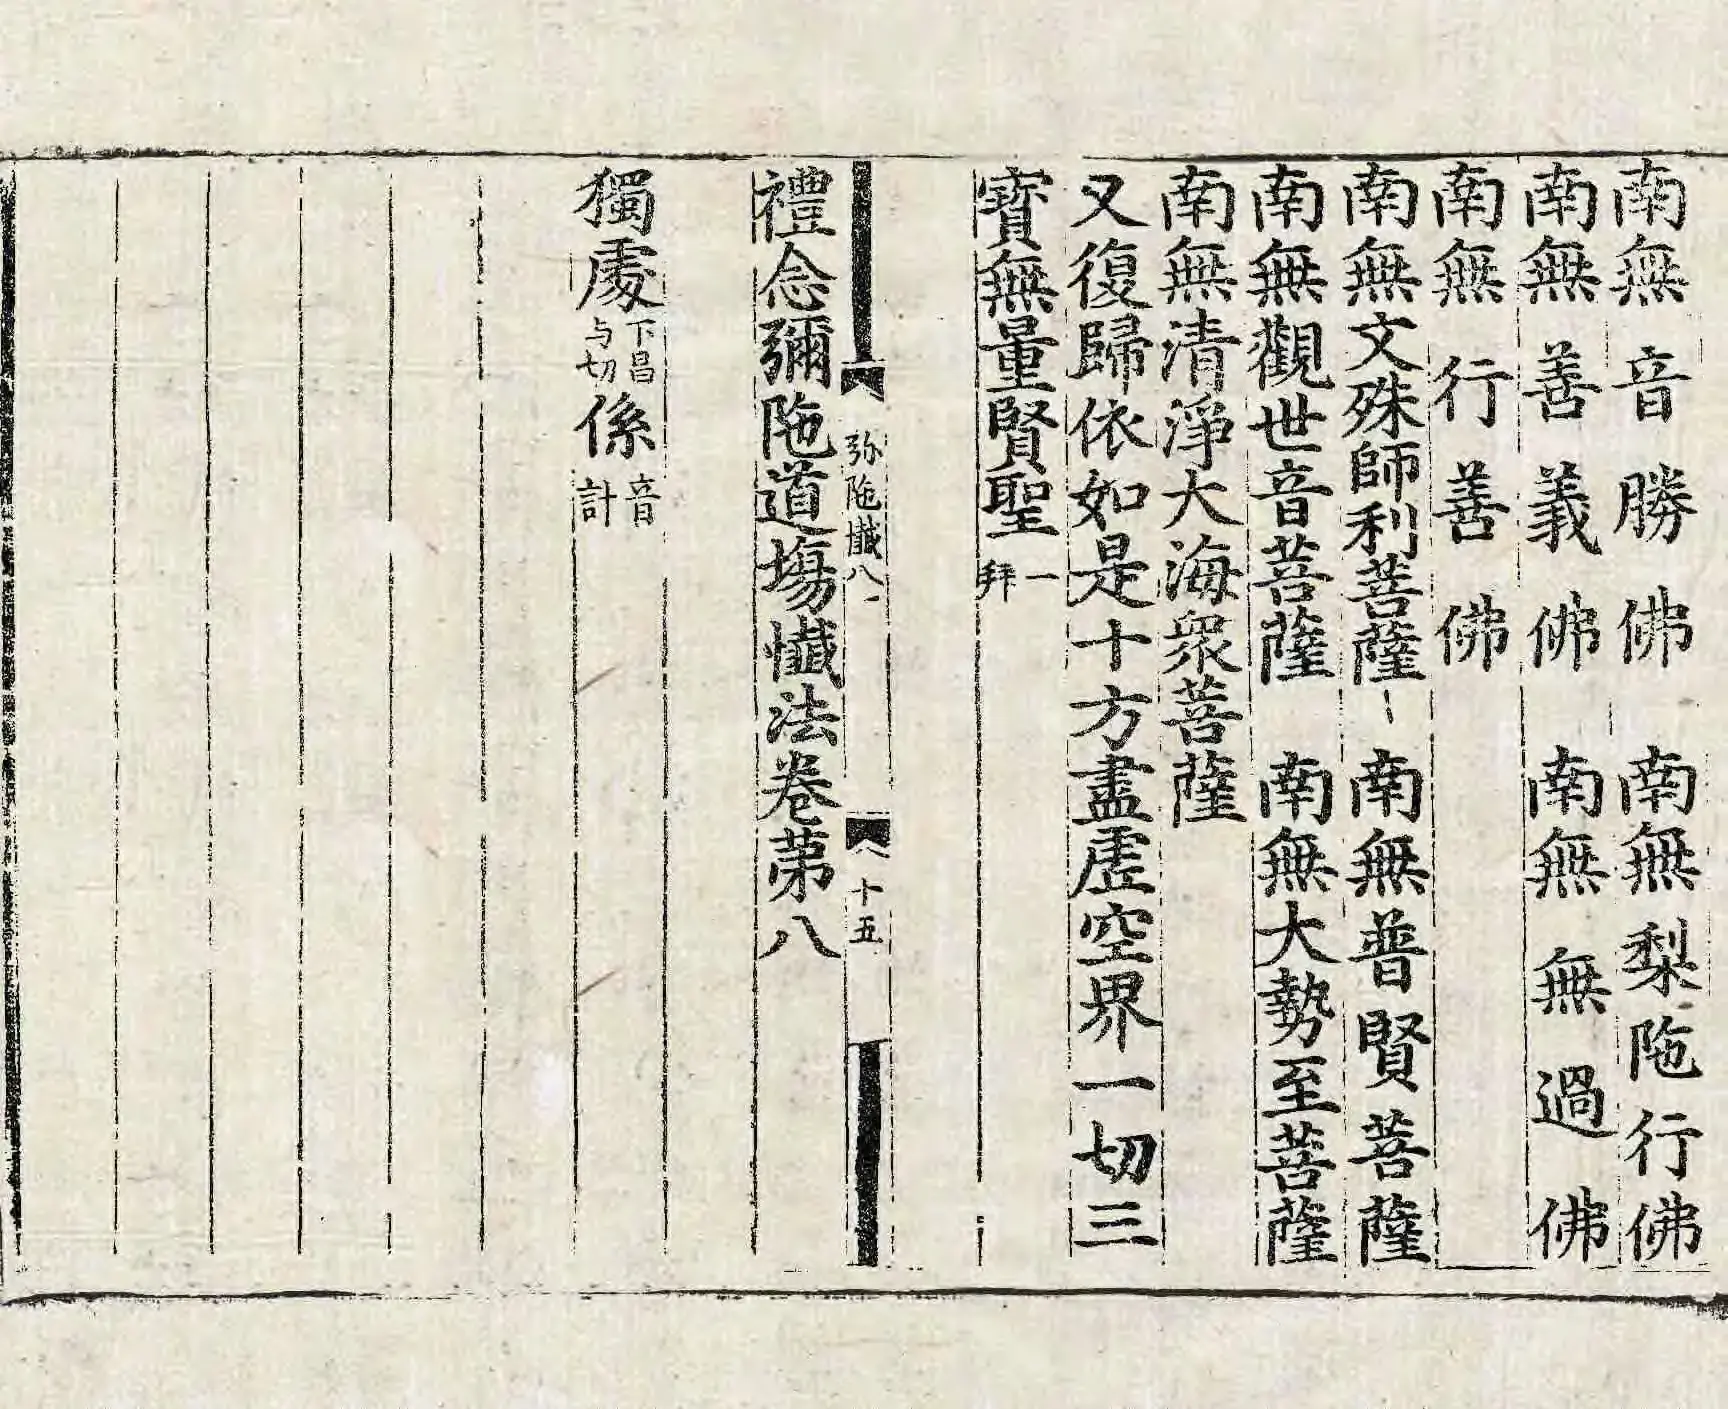 南無音勝佛　南無梨陁行佛
南無善義佛　南無無過佛
南無行善佛
南無文殊師利菩薩　南無普賢菩薩
南無觀世音菩薩　南無大勢至菩薩
南無清淨大海衆菩薩
又復歸依如是十方盡虛空界一切三
寶無量賢聖一拜
弥陁懺八　八　十五
禮念彌陁道場懺法卷第八
獨處下昌与切係音計